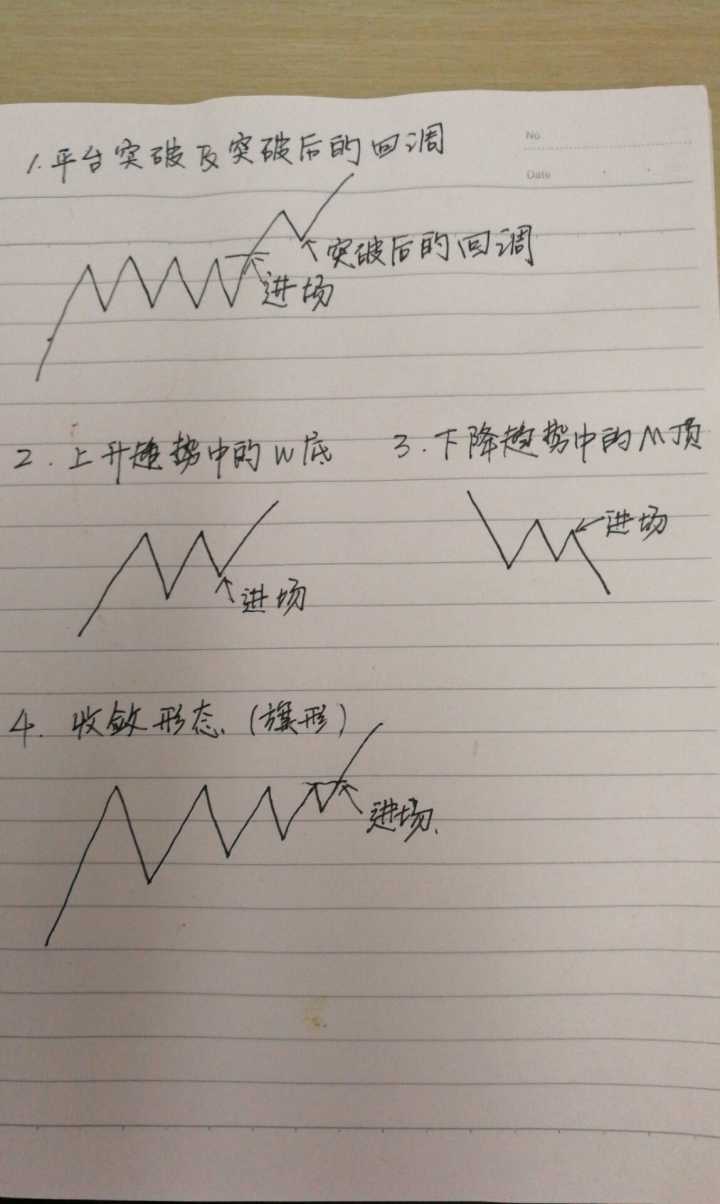 No
Date
1.平台突破及突破后的回调
突破后的回调
进场
2.上升趋势中的W底
3.下降趋势中的M顶
进场
进场
4.收敛形态、(旗形)
进场、